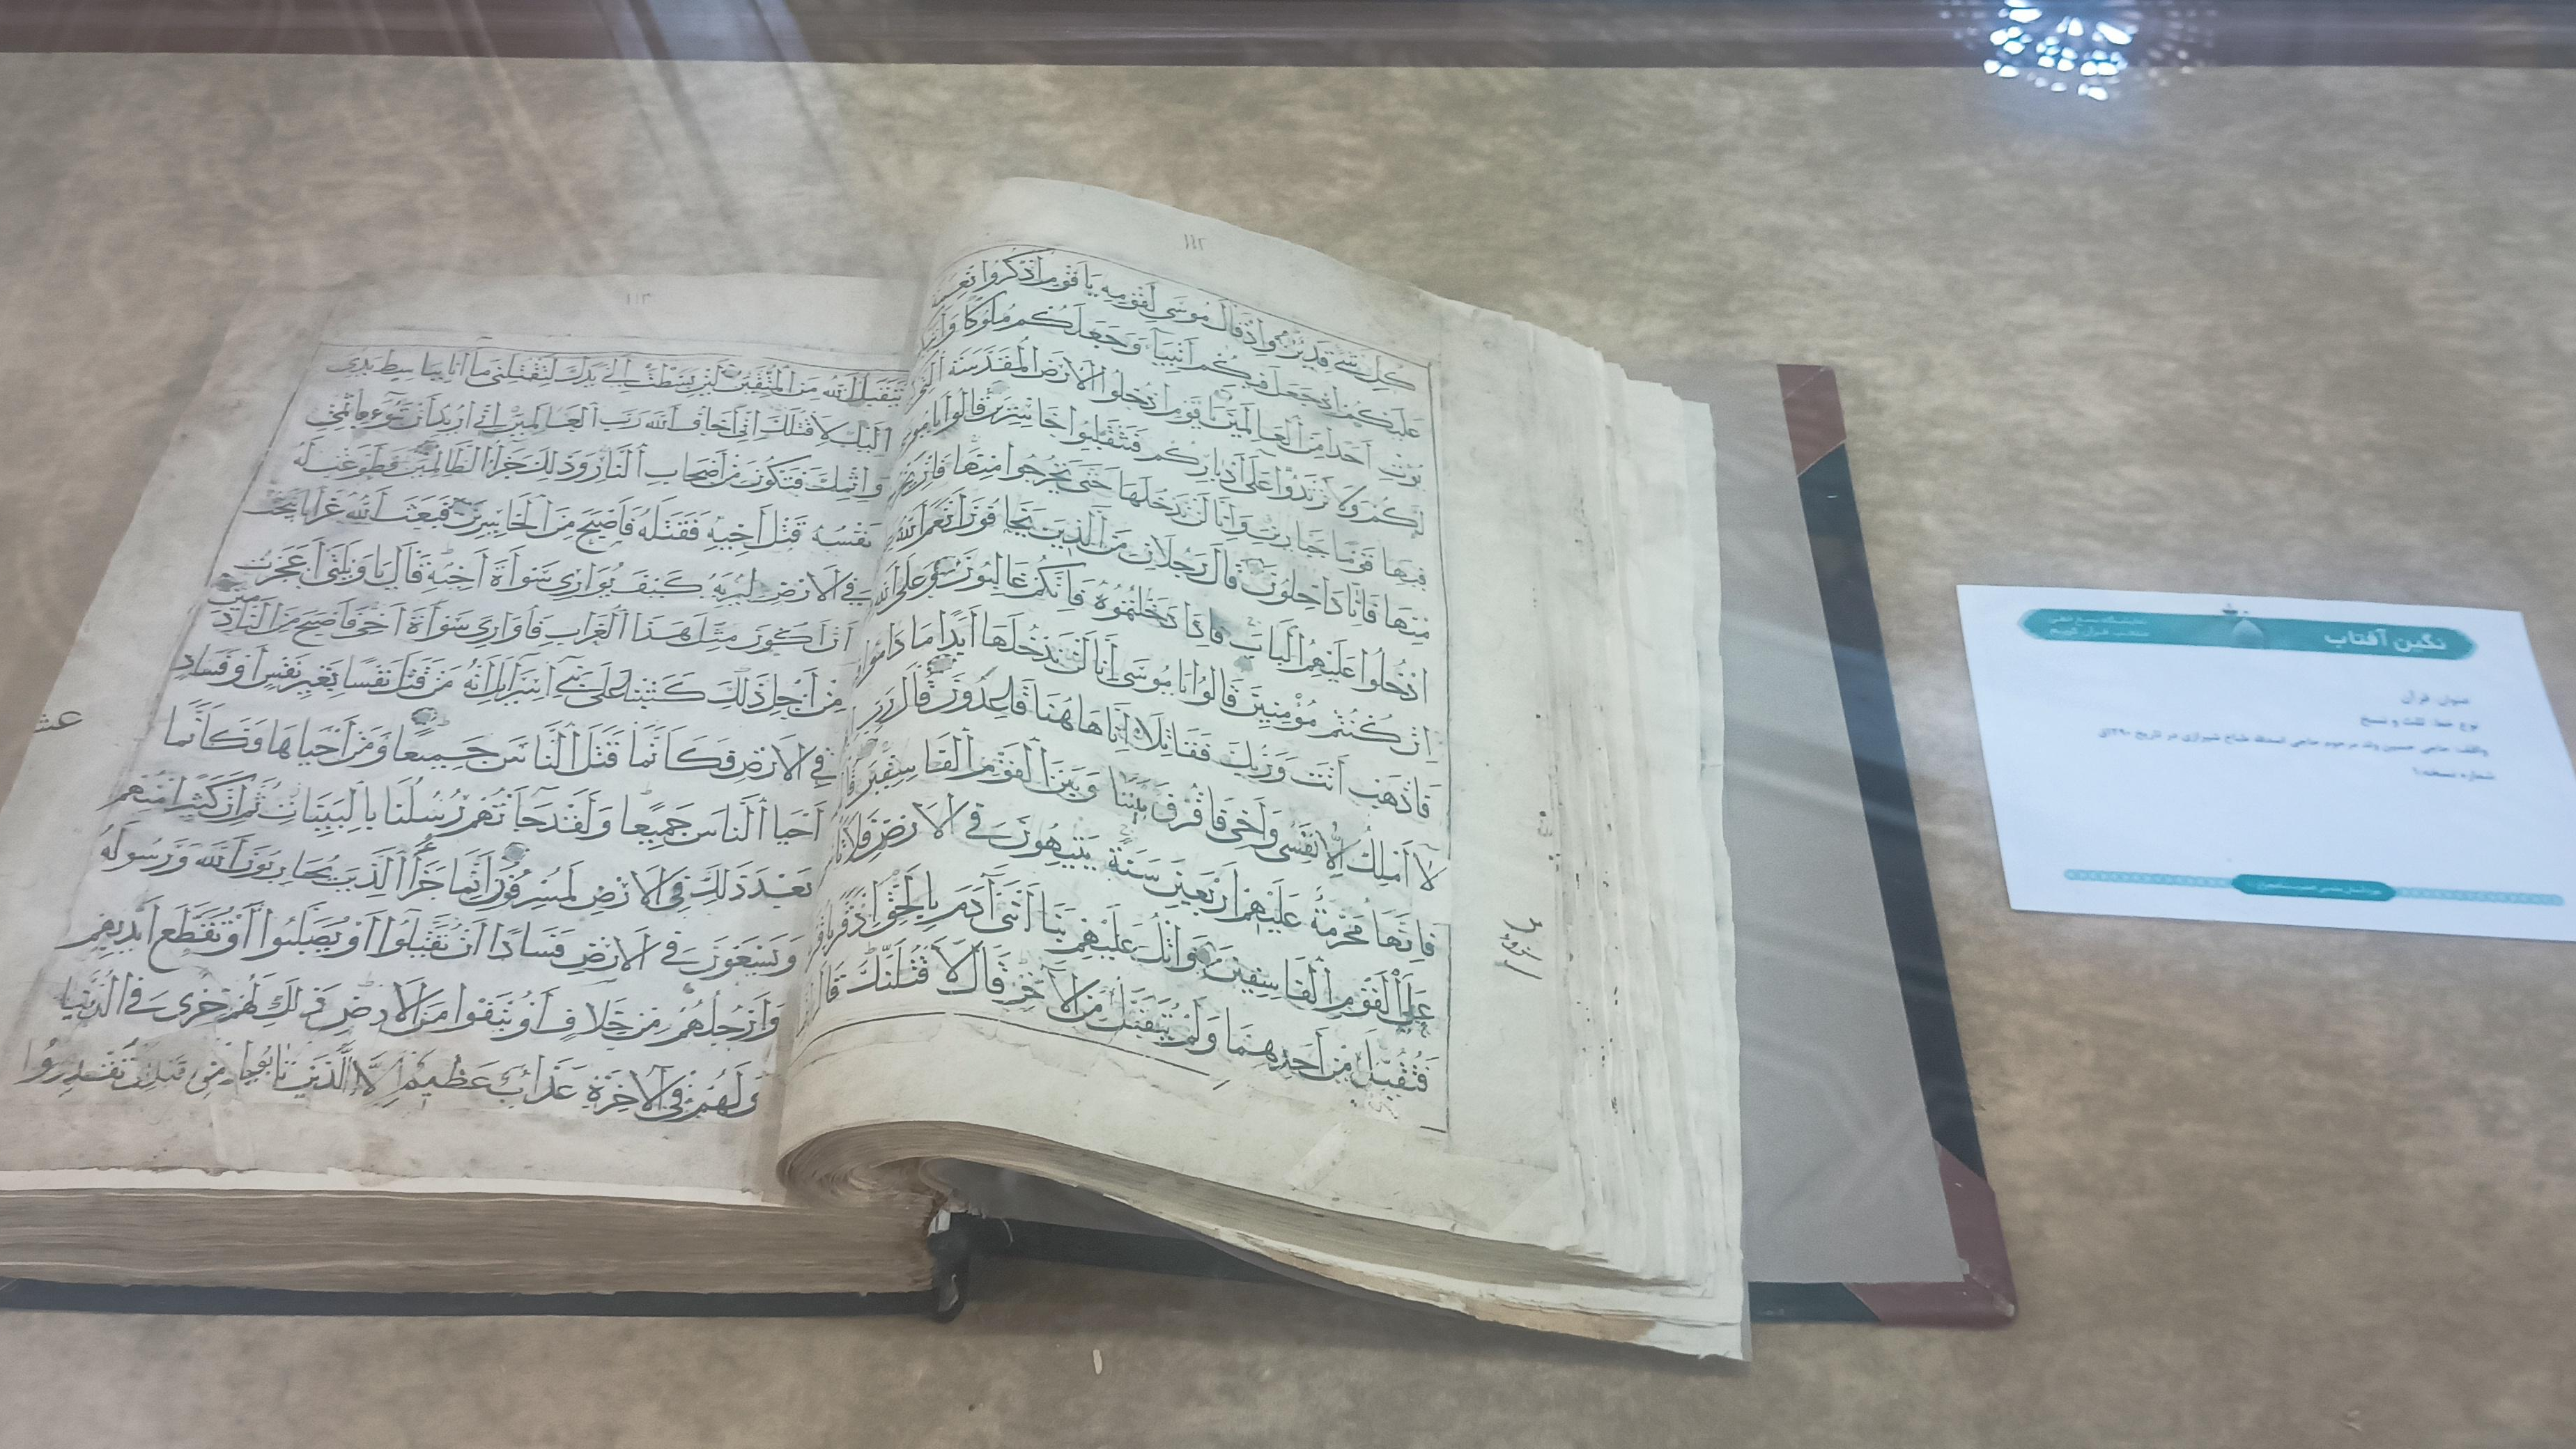 ١١٢
كُلِّ شَيْءٍ قَدِيرٌ وَإِذْ قَالَ مُوسَى لِقَوْمِهِ يَا قَوْمِ اذْكُرُوا نِعْمَةَ
عَلَيْكُمْ إِذْ جَعَلَ فِيكُمْ أَنْبِيَاءَ وَجَعَلَكُمْ مُلُوكًا
يُؤْتِ أَحَدًا مِنَ الْعَالَمِينَ يَا قَوْمِ ادْخُلُوا الْأَرْضَ الْمُقَدَّسَةَ الَّتِي
لَكُمْ وَلَا تَرْتَدُّوا عَلَى أَدْبَارِكُمْ فَتَنْقَلِبُوا خَاسِرِينَ قَالُوا يَا مُوسَى
فِيهَا قَوْمًا جَبَّارِينَ وَإِنَّا لَنْ نَدْخُلَهَا حَتَّى يَخْرُجُوا مِنْهَا فَإِنْ يَخْرُجُوا
مِنْهَا فَإِنَّا دَاخِلُونَ قَالَ رَجُلَانِ مِنَ الَّذِينَ يَخَافُونَ أَنْعَمَ اللَّهُ
ادْخُلُوا عَلَيْهِمُ الْبَابَ فَإِذَا دَخَلْتُمُوهُ فَإِنَّكُمْ غَالِبُونَ وَعَلَى اللَّهِ
إِنْ كُنْتُمْ مُؤْمِنِينَ قَالُوا يَا مُوسَى إِنَّا لَنْ نَدْخُلَهَا أَبَدًا مَا دَامُوا
فَاذْهَبْ أَنْتَ وَرَبُّكَ فَقَاتِلَا إِنَّا هَاهُنَا قَاعِدُونَ قَالَ رَبِّ
لَا أَمْلِكُ إِلَّا نَفْسِي وَأَخِي فَافْرُقْ بَيْنَنَا وَبَيْنَ الْقَوْمِ الْفَاسِقِينَ قَالَ
فَإِنَّهَا مُحَرَّمَةٌ عَلَيْهِمْ أَرْبَعِينَ سَنَةً يَتِيهُونَ فِي الْأَرْضِ فَلَا تَأْسَ
عَلَى الْقَوْمِ الْفَاسِقِينَ وَاتْلُ عَلَيْهِمْ نَبَأَ ابْنَيْ آدَمَ بِالْحَقِّ إِذْ قَرَّبَا
فَتُقُبِّلَ مِنْ أَحَدِهِمَا وَلَمْ يُتَقَبَّلْ مِنَ الْآخَرِ قَالَ لَأَقْتُلَنَّكَ قَالَ
١١٣
يَتَقَبَّلُ اللَّهُ مِنَ الْمُتَّقِينَ لَئِنْ بَسَطْتَ إِلَيَّ يَدَكَ لِتَقْتُلَنِي مَا أَنَا بِبَاسِطٍ يَدِيَ
إِلَيْكَ لِأَقْتُلَكَ إِنِّي أَخَافُ اللَّهَ رَبَّ الْعَالَمِينَ إِنِّي أُرِيدُ أَنْ تَبُوءَ بِإِثْمِي
وَإِثْمِكَ فَتَكُونَ مِنْ أَصْحَابِ النَّارِ وَذَلِكَ جَزَاءُ الظَّالِمِينَ فَطَوَّعَتْ لَهُ
نَفْسُهُ قَتْلَ أَخِيهِ فَقَتَلَهُ فَأَصْبَحَ مِنَ الْخَاسِرِينَ فَبَعَثَ اللَّهُ غُرَابًا يَبْحَثُ
فِي الْأَرْضِ لِيُرِيَهُ كَيْفَ يُوَارِي سَوْأَةَ أَخِيهِ قَالَ يَا وَيْلَتَى أَعَجَزْتُ
أَنْ أَكُونَ مِثْلَ هَذَا الْغُرَابِ فَأُوَارِيَ سَوْأَةَ أَخِي فَأَصْبَحَ مِنَ النَّادِمِينَ
مِنْ أَجْلِ ذَلِكَ كَتَبْنَا عَلَى بَنِي إِسْرَائِيلَ أَنَّهُ مَنْ قَتَلَ نَفْسًا بِغَيْرِ نَفْسٍ أَوْ فَسَادٍ
فِي الْأَرْضِ فَكَأَنَّمَا قَتَلَ النَّاسَ جَمِيعًا وَمَنْ أَحْيَاهَا فَكَأَنَّمَا
أَحْيَا النَّاسَ جَمِيعًا وَلَقَدْ جَاءَتْهُمْ رُسُلُنَا بِالْبَيِّنَاتِ ثُمَّ إِنَّ كَثِيرًا مِنْهُمْ
بَعْدَ ذَلِكَ فِي الْأَرْضِ لَمُسْرِفُونَ إِنَّمَا جَزَاءُ الَّذِينَ يُحَارِبُونَ اللَّهَ وَرَسُولَهُ
وَيَسْعَوْنَ فِي الْأَرْضِ فَسَادًا أَنْ يُقَتَّلُوا أَوْ يُصَلَّبُوا أَوْ تُقَطَّعَ أَيْدِيهِمْ
وَأَرْجُلُهُمْ مِنْ خِلَافٍ أَوْ يُنْفَوْا مِنَ الْأَرْضِ ذَلِكَ لَهُمْ خِزْيٌ فِي الدُّنْيَا
وَلَهُمْ فِي الْآخِرَةِ عَذَابٌ عَظِيمٌ إِلَّا الَّذِينَ تَابُوا مِنْ قَبْلِ أَنْ تَقْدِرُوا
نگین آفتاب
عنوان: قرآن
نوع خط: ثلث و نسخ
شماره نسخه: ١